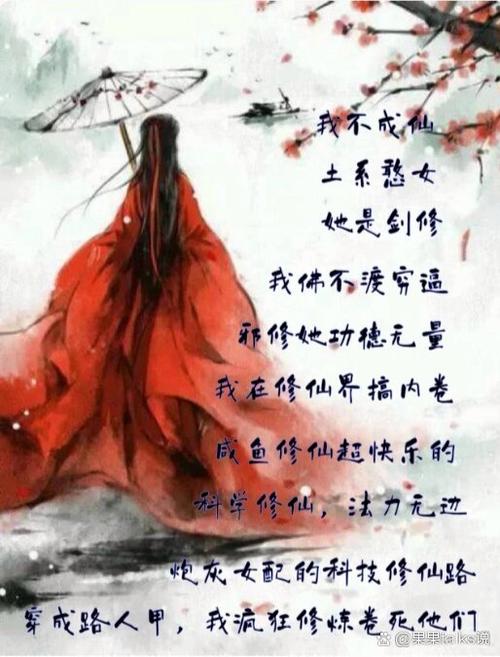 我不成仙
土系憨女
她是剑修
我佛不渡穷逼
邪修她功德无量
我在修仙界搞内卷
咸鱼修仙超快乐的
科学修仙，法力无边
炮灰女配的科技修仙路
穿成路人甲，我疯狂修炼卷死他们
果果talks说